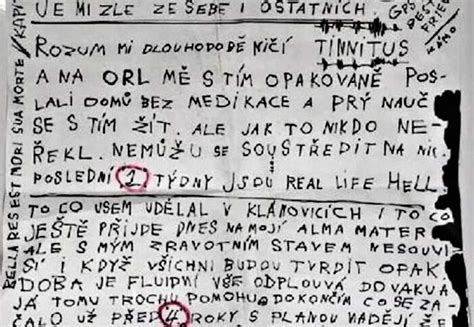 JE MI ZLE ZE SEBE I OSTATNÍCH.
ROZUM MI DLOUHODOBĚ NIČÍ TINNITUS
A NA ORL MĚ S TÍM OPAKOVANĚ POS-
LALI DOMŮ BEZ MEDIKACE A PRÝ NAUČ
SE S TÍM ŽÍT. ALE JAK TO NIKDO NE-
ŘEKL. NEMŮŽU SE SOUSTŘEDIT NA NIC.
POSLEDNÍ 1 TÝDNY JSOU REAL LIFE HELL.
TO CO JSEM UDĚLAL V KLÁNOVICÍCH I TO CO
JEŠTĚ PŘIJDE DNES NA MOJÍ ALMA MATER
ALE S MÝM ZRAVOTNÍM STAVEM NESOUVI
SÍ I KDYŽ VŠICHNI BUDOU TVRDIT OPAK
DOBA JE FLUIDNÍ VŠE ODPLOUVÁ DO VAKUA
JÁ TOMU TROCHU POMOHU. DOKONČÍM CO SE ZA-
ČALO UŽ PŘED 4 ROKY S PLANOU NADĚJÍ ŽE
BELLA RES EST MORI SUA MORTE
GPS
BEST
FRIE
KÁMO